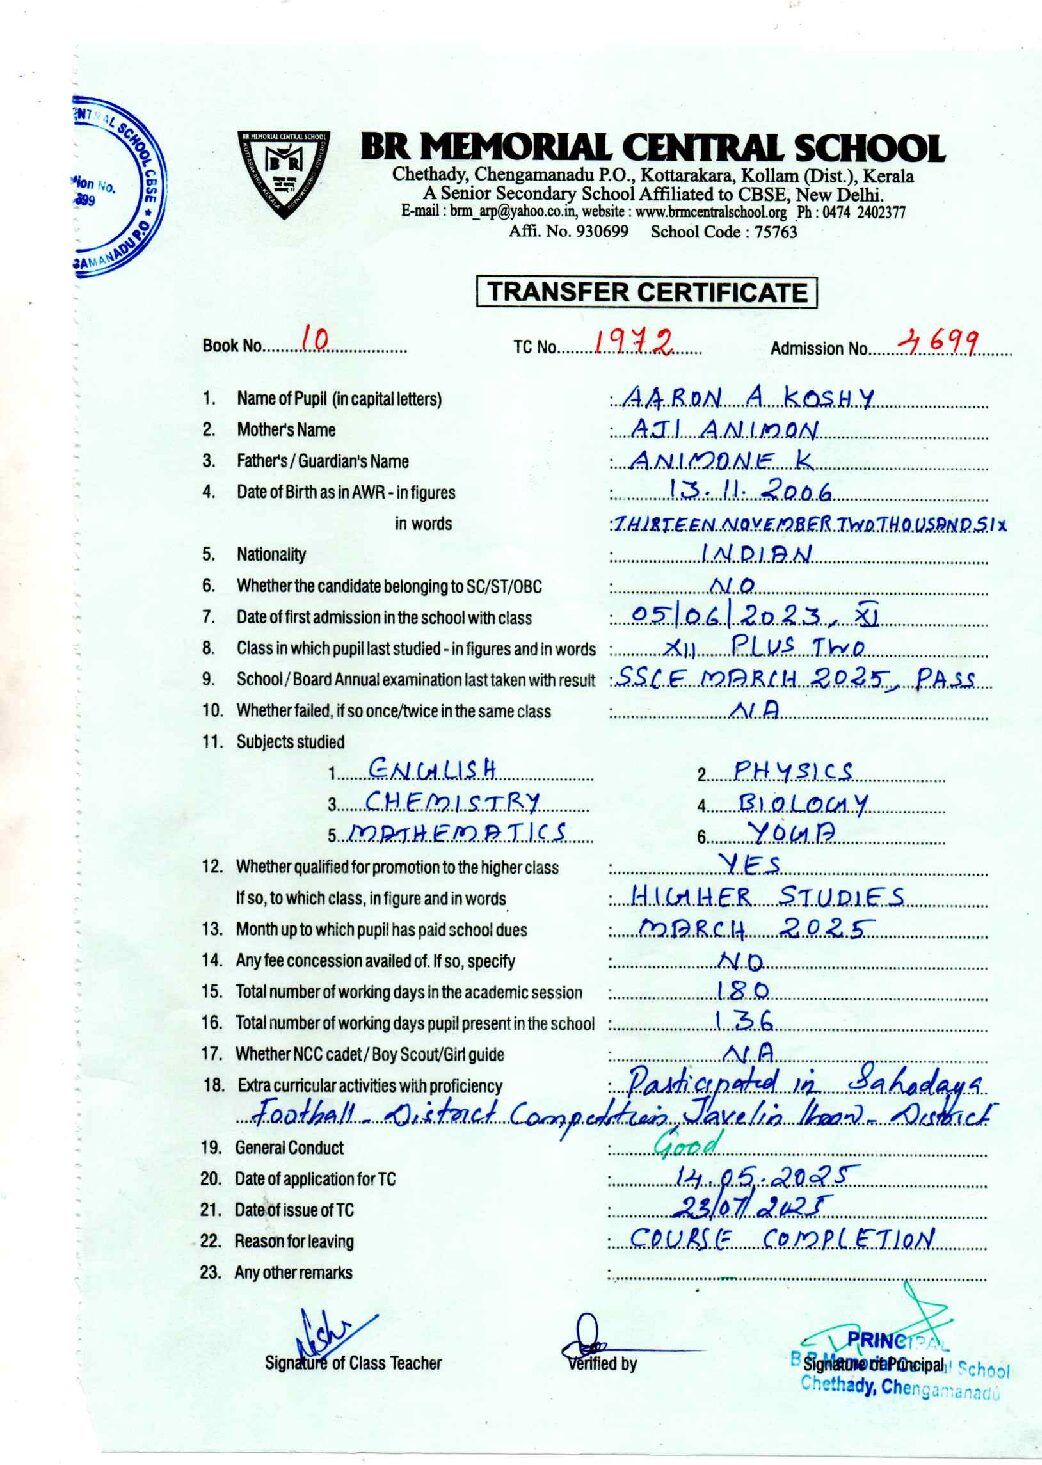 ENTRAL SCHOOL CBSE ★
tion No.
399
GAMANADU P.O
BR MEMORIAL CENTRAL SCHOOL
B R
BR MEMORIAL CENTRAL SCHOOL
Chethady, Chengamanadu P.O., Kottarakara, Kollam (Dist.), Kerala
A Senior Secondary School Affiliated to CBSE, New Delhi.
E-mail : brm_arp@yahoo.co.in, website : www.brmcentralschool.org Ph : 0474 2402377
Affi. No. 930699 School Code : 75763
TRANSFER CERTIFICATE
Book No. 10 TC No. 1972 Admission No. 4699
1. Name of Pupil (in capital letters) : AARON A KOSHY
2. Mother's Name : AJI ANIMON
3. Father's / Guardian's Name : ANIMONE K
4. Date of Birth as in AWR - in figures : 13.11.2006
in words : THIRTEEN NOVEMBER TWO THOUSAND SIX
5. Nationality : INDIAN
6. Whether the candidate belonging to SC/ST/OBC : NO
7. Date of first admission in the school with class : 05/06/2023, XI
8. Class in which pupil last studied - in figures and in words : XII PLUS TWO
9. School / Board Annual examination last taken with result : SSCE MARCH 2025, PASS
10. Whether failed, if so once/twice in the same class : NA
11. Subjects studied
1 ENGLISH 2 PHYSICS
3 CHEMISTRY 4 BIOLOGY
5 MATHEMATICS 6 YOGA
12. Whether qualified for promotion to the higher class : YES
If so, to which class, in figure and in words : HIGHER STUDIES
13. Month up to which pupil has paid school dues : MARCH 2025
14. Any fee concession availed of. If so, specify : NO
15. Total number of working days in the academic session : 180
16. Total number of working days pupil present in the school : 136
17. Whether NCC cadet / Boy Scout/Girl guide : NA
18. Extra curricular activities with proficiency : Participated in Sahodaya
Football - District Competition, Javelin throw - District
19. General Conduct : Good
20. Date of application for TC : 14.05.2025
21. Date of issue of TC : 23/07/2025
22. Reason for leaving : COURSE COMPLETION
23. Any other remarks :
PRINCIPAL
Signature of Class Teacher Verified by Signature of Principal
B R Memorial Central School
Chethady, Chengamanadu